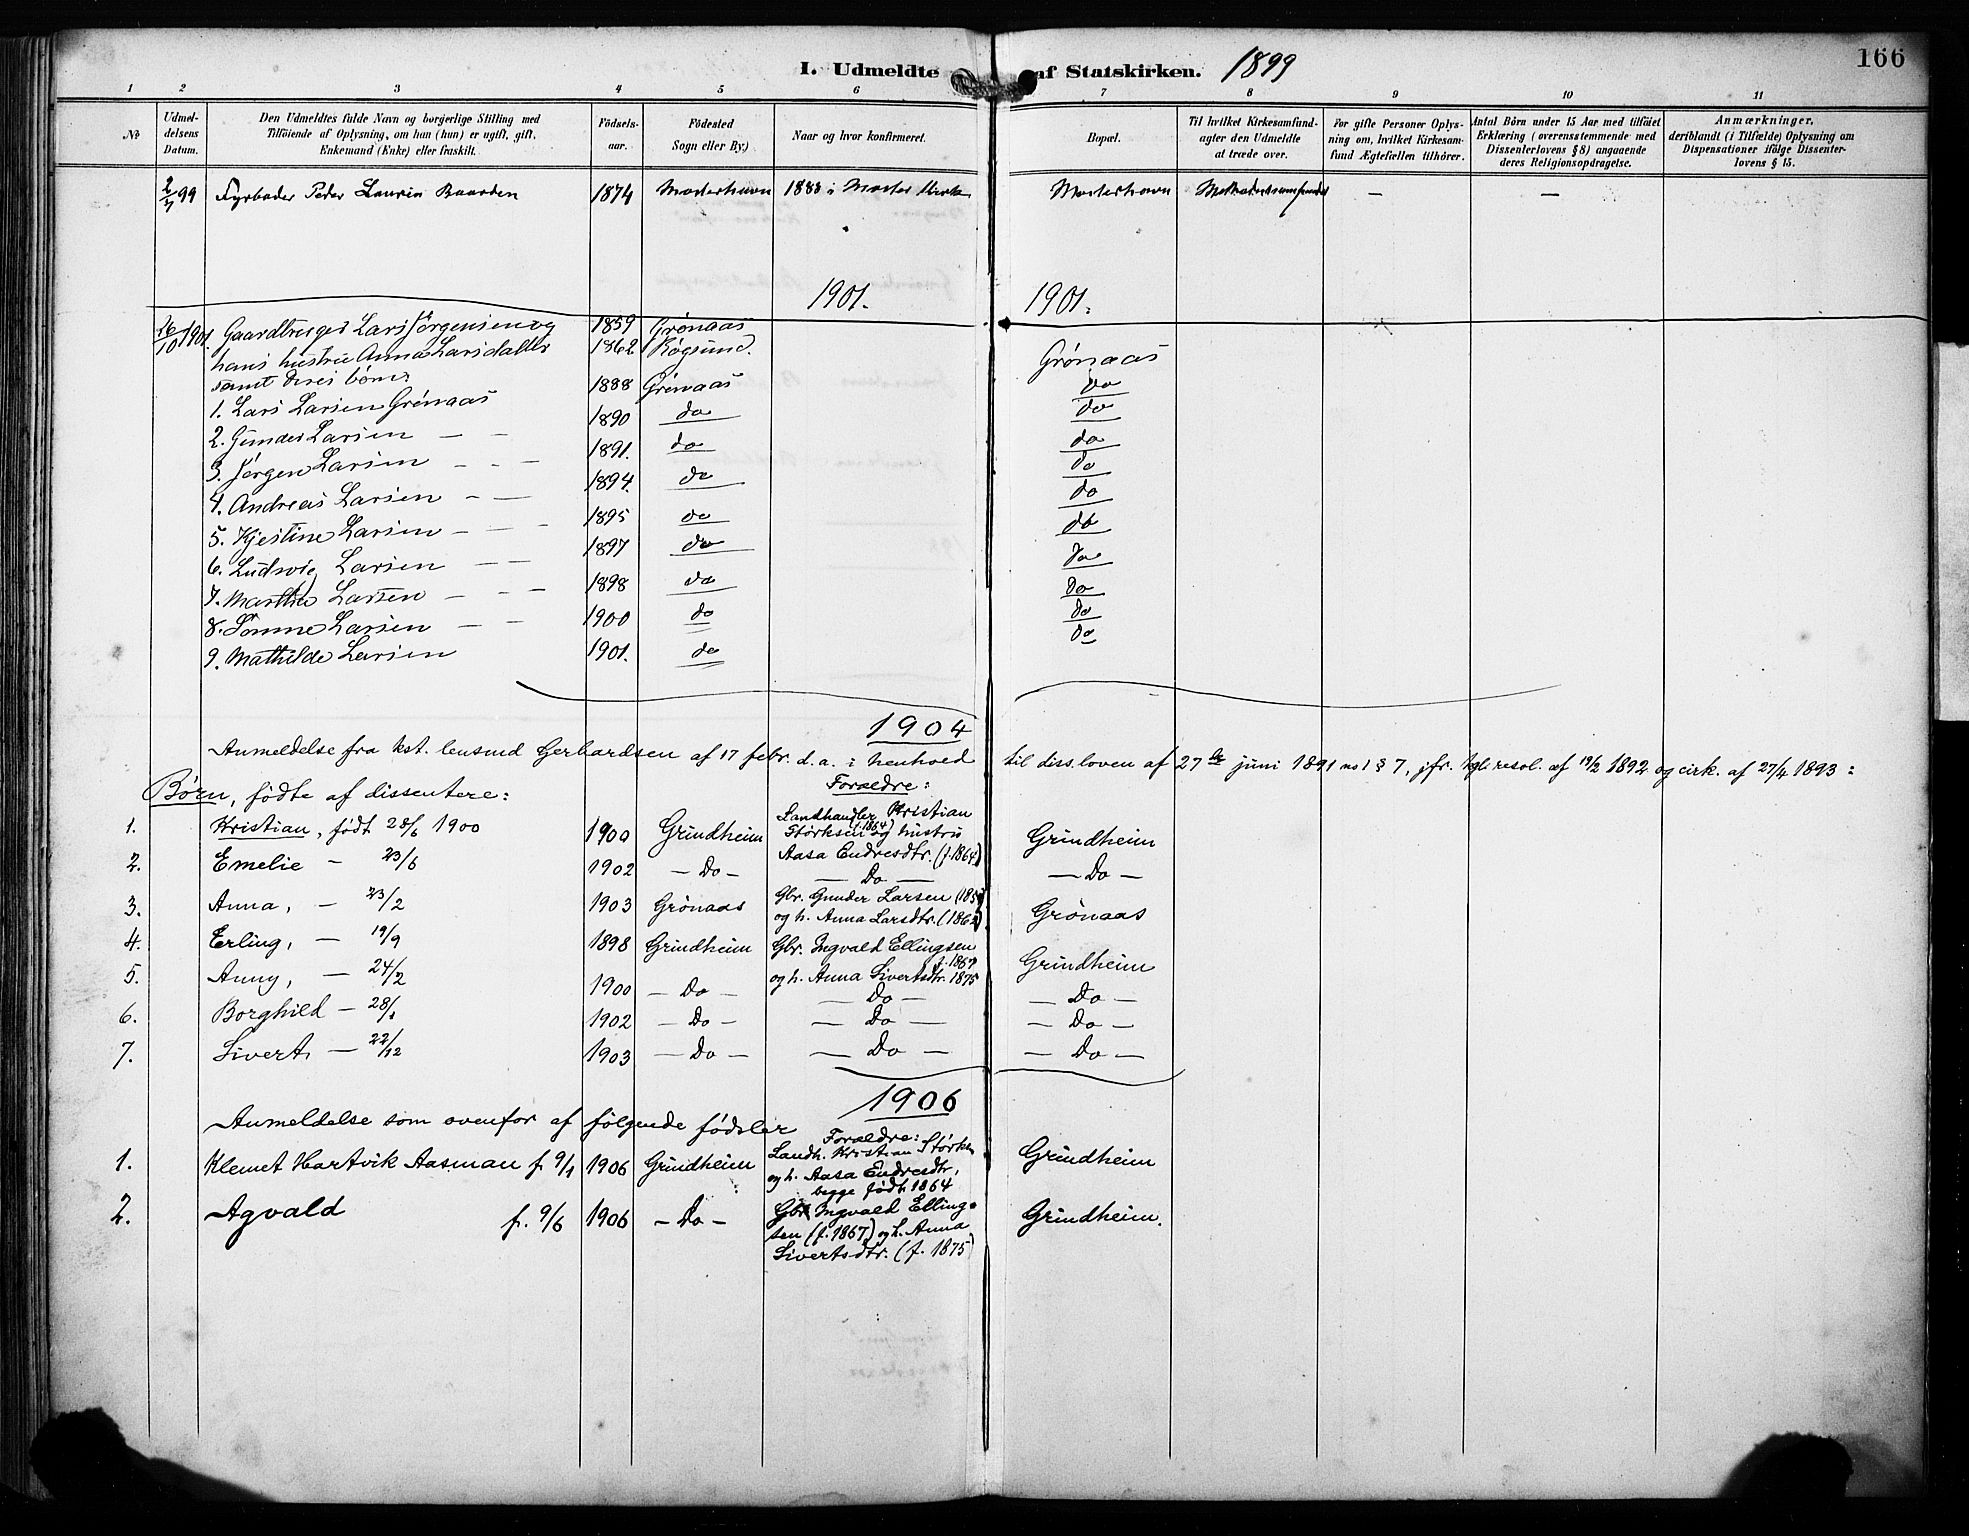 166
I. Udmeldte af Statskirken. 1899
1 2 3 4 5 6 7 8 9 10 11
No
Udmeldelsens Datum.
Den Udmeldtes fulde Navn og borgerlige Stilling med
Tilföiende af Oplysning, om han (hun) er ugift, gift,
Enkemand (Enke) eller fraskilt.
Födselsaar.
Födested
Sogn eller By.)
Naar og hvor konfirmeret.
Bopæl.
Til hvilket Kirkesamfund agter den Udmeldte at træde over.
For gifte Personer Oplysning om, hvilket Kirkesamfund Ægtefællen tilhörer.
Antal Börn under 15 Aar med tilföiet
Erklæring (overensstemmende med
Dissenterlovens § 8) angaaende
deres Religionsopdragelse.
Anmærkninger,
deriblandt (i Tilfælde) Oplysning om
Dispensationer ifölge Dissenterlovens § 15.
2/7 99 Fyrböder Peder Laurin Baarden 1874 Mosterhavn 1888 i Moster Kirke Mosterhavn Methodistsamfundet — —
1901. 1901.
16/10 1901. Gaardbruger Lars Jørgensen og 1859 Grønaas
hans hustru Anna Larsdatter 1862 Røgsund. Grønaas
samt deres børn: do
1. Lars Larsen Grønaas 1888 Grønaas do
2. Gunder Larsen — — 1890 do do
3. Jørgen Larsen — — 1891. do do
4. Andreas Larsen — — 1894. do do
5. Kjestine Larsen — — 1895 do do
6. Ludvig Larsen — — 1897 do do
7. Martha Larsen — — 1898 do do
8. Larsen — — 1900 do do
9. Mathilde Larsen 1901. do do
1904
Anmeldelse fra kst. lensmd Gerhardsen af 17 febr. d.a. i henhold til diss.loven af 27de juni 1891 no 1 § 7, jfr. kgl. resol. af 19/2 1892 og cirk. af 27/4 1893:
Børn, fødte af dissentere: Forældre:
1. Kristian, født 28/6 1900 1900 Grindheim Landhandler Kristian Størksen (f. 1864) og hustru Aasa Endresdtr. (f. 1864) Grindheim
2. Emelie — 23/6 1902 — Do — — Do — — Do —
3. Anna, — 23/2 1903 Grønaas Gbr. Gunder Larsen (1859) og h. Anna Larsdtr. (1862) Grønaas
4. Erling, — 19/9 1898 Grindheim Gbr. Ingvald Ellingsen f. 1867 og h. Anna Sivertsdtr. 1875 Grindheim
5. Anny, — 24/2 1900 — Do — — Do — — Do —
6. Borghild — 28/1 1902 — Do — — Do — — Do —
7. Sivert, — 22/12 1903 — Do — — Do — — Do —
1906
Anmeldelse som ovenfor af følgende fødsler
Forældre:
1. Klemet Hartvik Aasman f. 9/1 1906 Grindheim Landh. Kristian Størks. og h. Aasa Endresdtr, begge født 1864 Grindheim
2. Agvald f. 9/6 1906 — Do — Gbr. Ingvald Ellingsen (f. 1867) og h. Anna Sivertsdtr. (f. 1875) Grindheim.